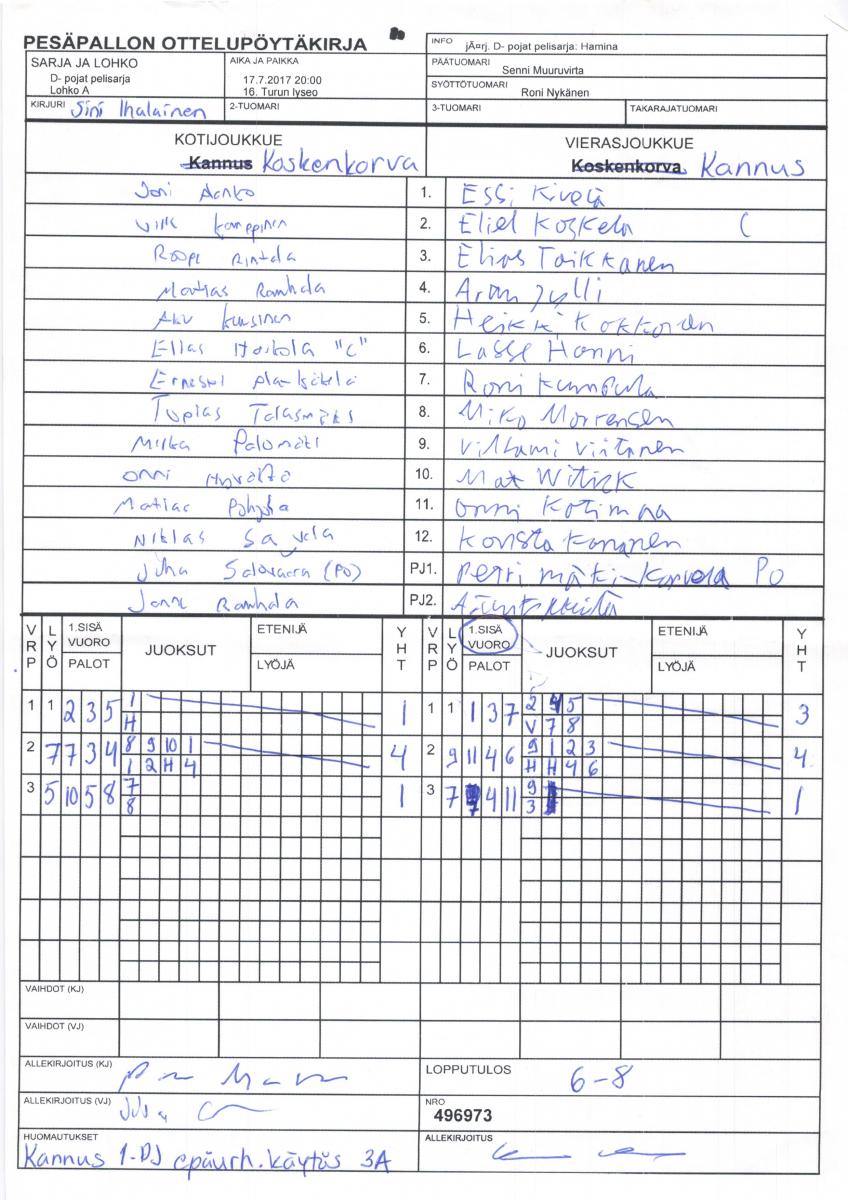 PESÄPALLON OTTELUPÖYTÄKIRJA
INFO jÃ¤rj. D- pojat pelisarja: Hamina
SARJA JA LOHKO
D- pojat pelisarja
Lohko A
AIKA JA PAIKKA
17.7.2017 20:00
16. Turun lyseo
PÄÄTUOMARI Senni Muuruvirta
SYÖTTÖTUOMARI Roni Nykänen
KIRJURI Sini Ihalainen 2-TUOMARI 3-TUOMARI TAKARAJATUOMARI
KOTIJOUKKUE VIERASJOUKKUE
Kannus Koskenkorva Koskenkorva Kannus
Joni 1. Essi Kivelä
Ville 2. Eliel Koskela (
Roope Rintala 3. Elias Toikkanen
Matias Ranhala 4.
Aku 5. Heikki Kokkonen
Elias "C" 6. Lasse Honni
7. Roni
Topias 8. Miko Mortensen
Palomäki 9. Vilhami Viitanen
Onni 10. Max
Matias Pohjola 11. Onni Kotimaa
Niklas Savela 12. Konsta Kananen
Juha Salovaara (PO) PJ1. Petri PO
Ranhala PJ2.
VRP LYÖ 1.SISÄ VUORO PALOT JUOKSUT ETENIJÄ LYÖJÄ YHT VRP LYÖ 1.SISÄ VUORO PALOT JUOKSUT ETENIJÄ LYÖJÄ YHT
1 1 2 3 5 1 1 1 1 1 3 7 2 4 5 3
H V 7 8
2 7 7 3 4 8 9 10 1 4 2 9 11 4 6 9 1 2 3 4
1 2 H 4 H H 4 6
3 5 10 5 8 7 1 3 7 7 4 11 9 1
8 3
VAIHDOT (KJ)
VAIHDOT (VJ)
ALLEKIRJOITUS (KJ) LOPPUTULOS 6-8
ALLEKIRJOITUS (VJ) NRO
496973
HUOMAUTUKSET ALLEKIRJOITUS
Kannus 1-PJ epäurh. käytös 3A